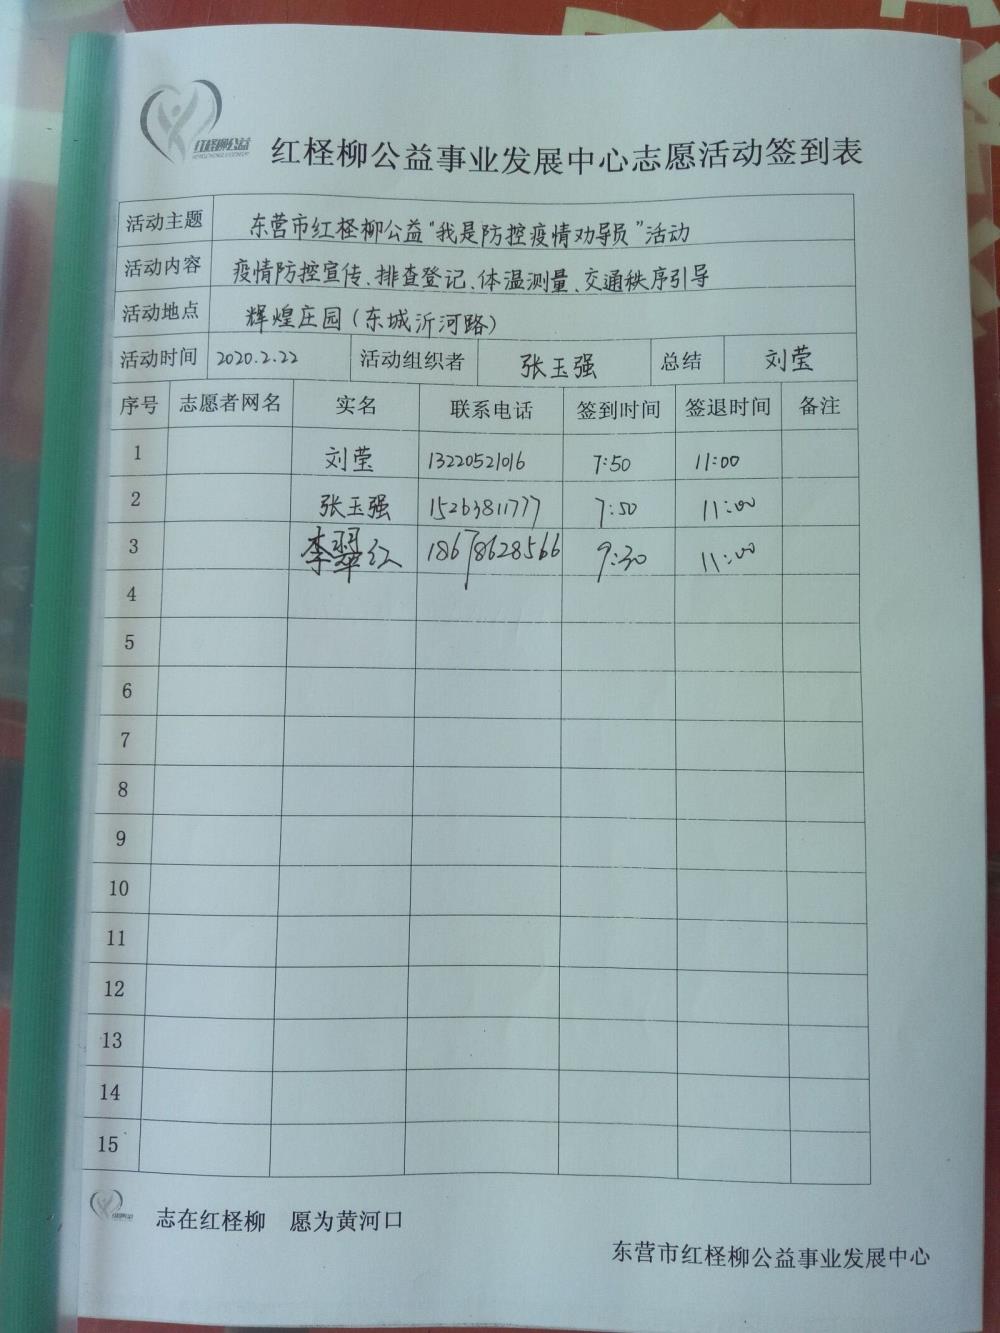 红柽柳公益
红柽柳公益事业发展中心志愿活动签到表
活动主题 东营市红柽柳公益“我是防控疫情劝导员”活动
活动内容 疫情防控宣传、排查登记、体温测量、交通秩序引导
活动地点 辉煌庄园(东城沂河路)
活动时间 2020.2.22 活动组织者 张玉强 总结 刘莹
序号 志愿者网名 实名 联系电话 签到时间 签退时间 备注
1 刘莹 13220521016 7:50 11:00
2 张玉强 15263811777 7:50 11:00
3 李翠红 18678628566 9:30 11:00
4
5
6
7
8
9
10
11
12
13
14
15
志在红柽柳 愿为黄河口
东营市红柽柳公益事业发展中心